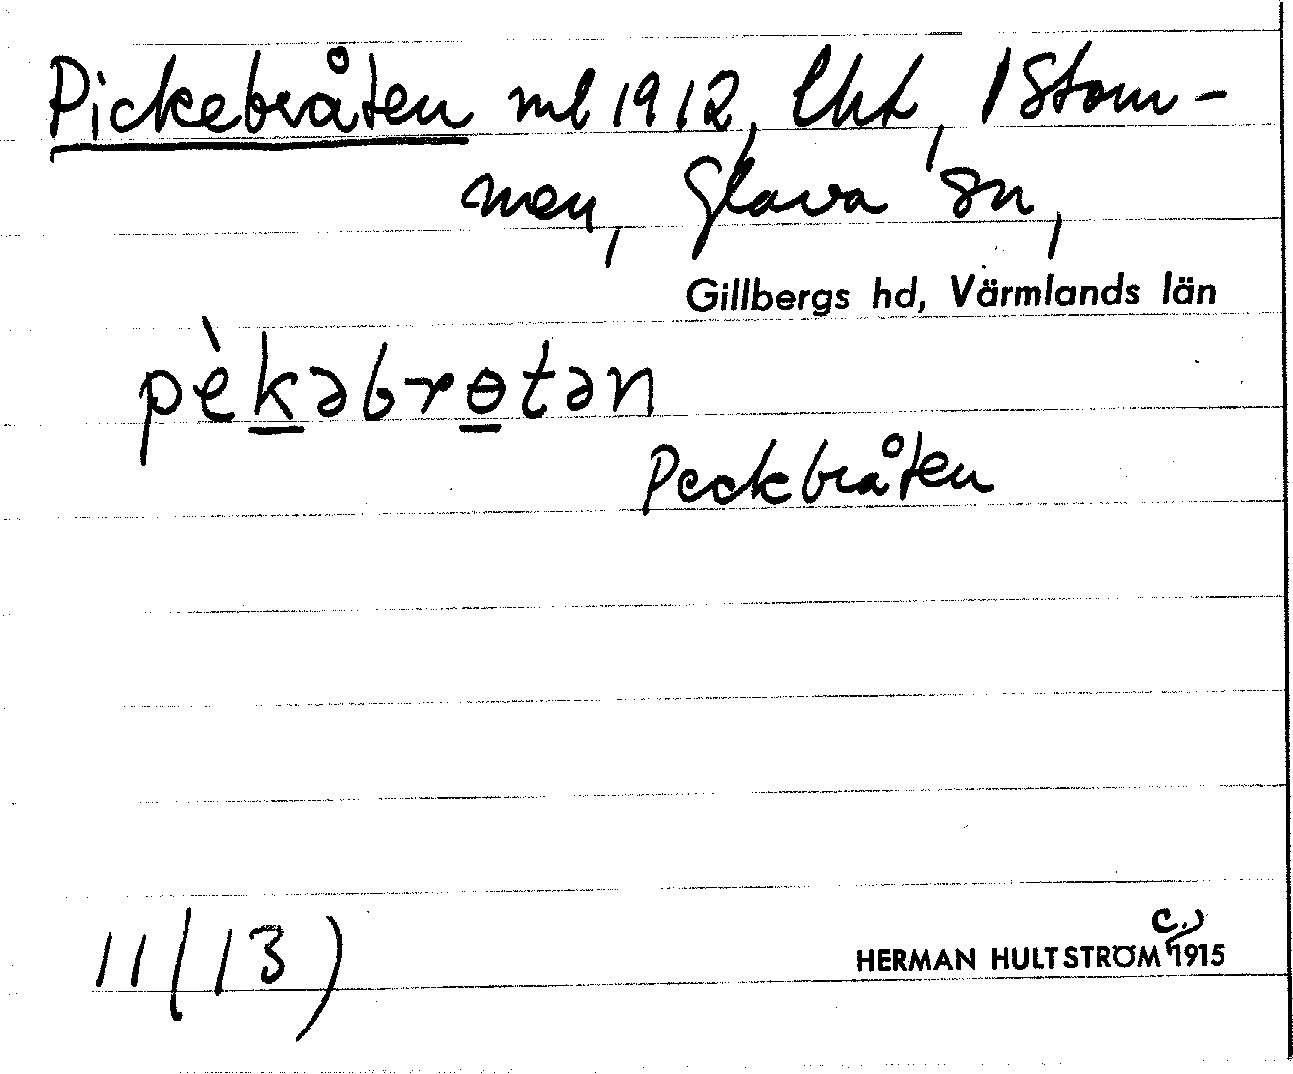 Pickebråten ml 1912, lht, 1 Stom-
men, Glava sn,
Gillbergs hd, Värmlands län
pèkəbrɵtən
Peckbråten
11(13)
HERMAN HULTSTRÖM c. 1915